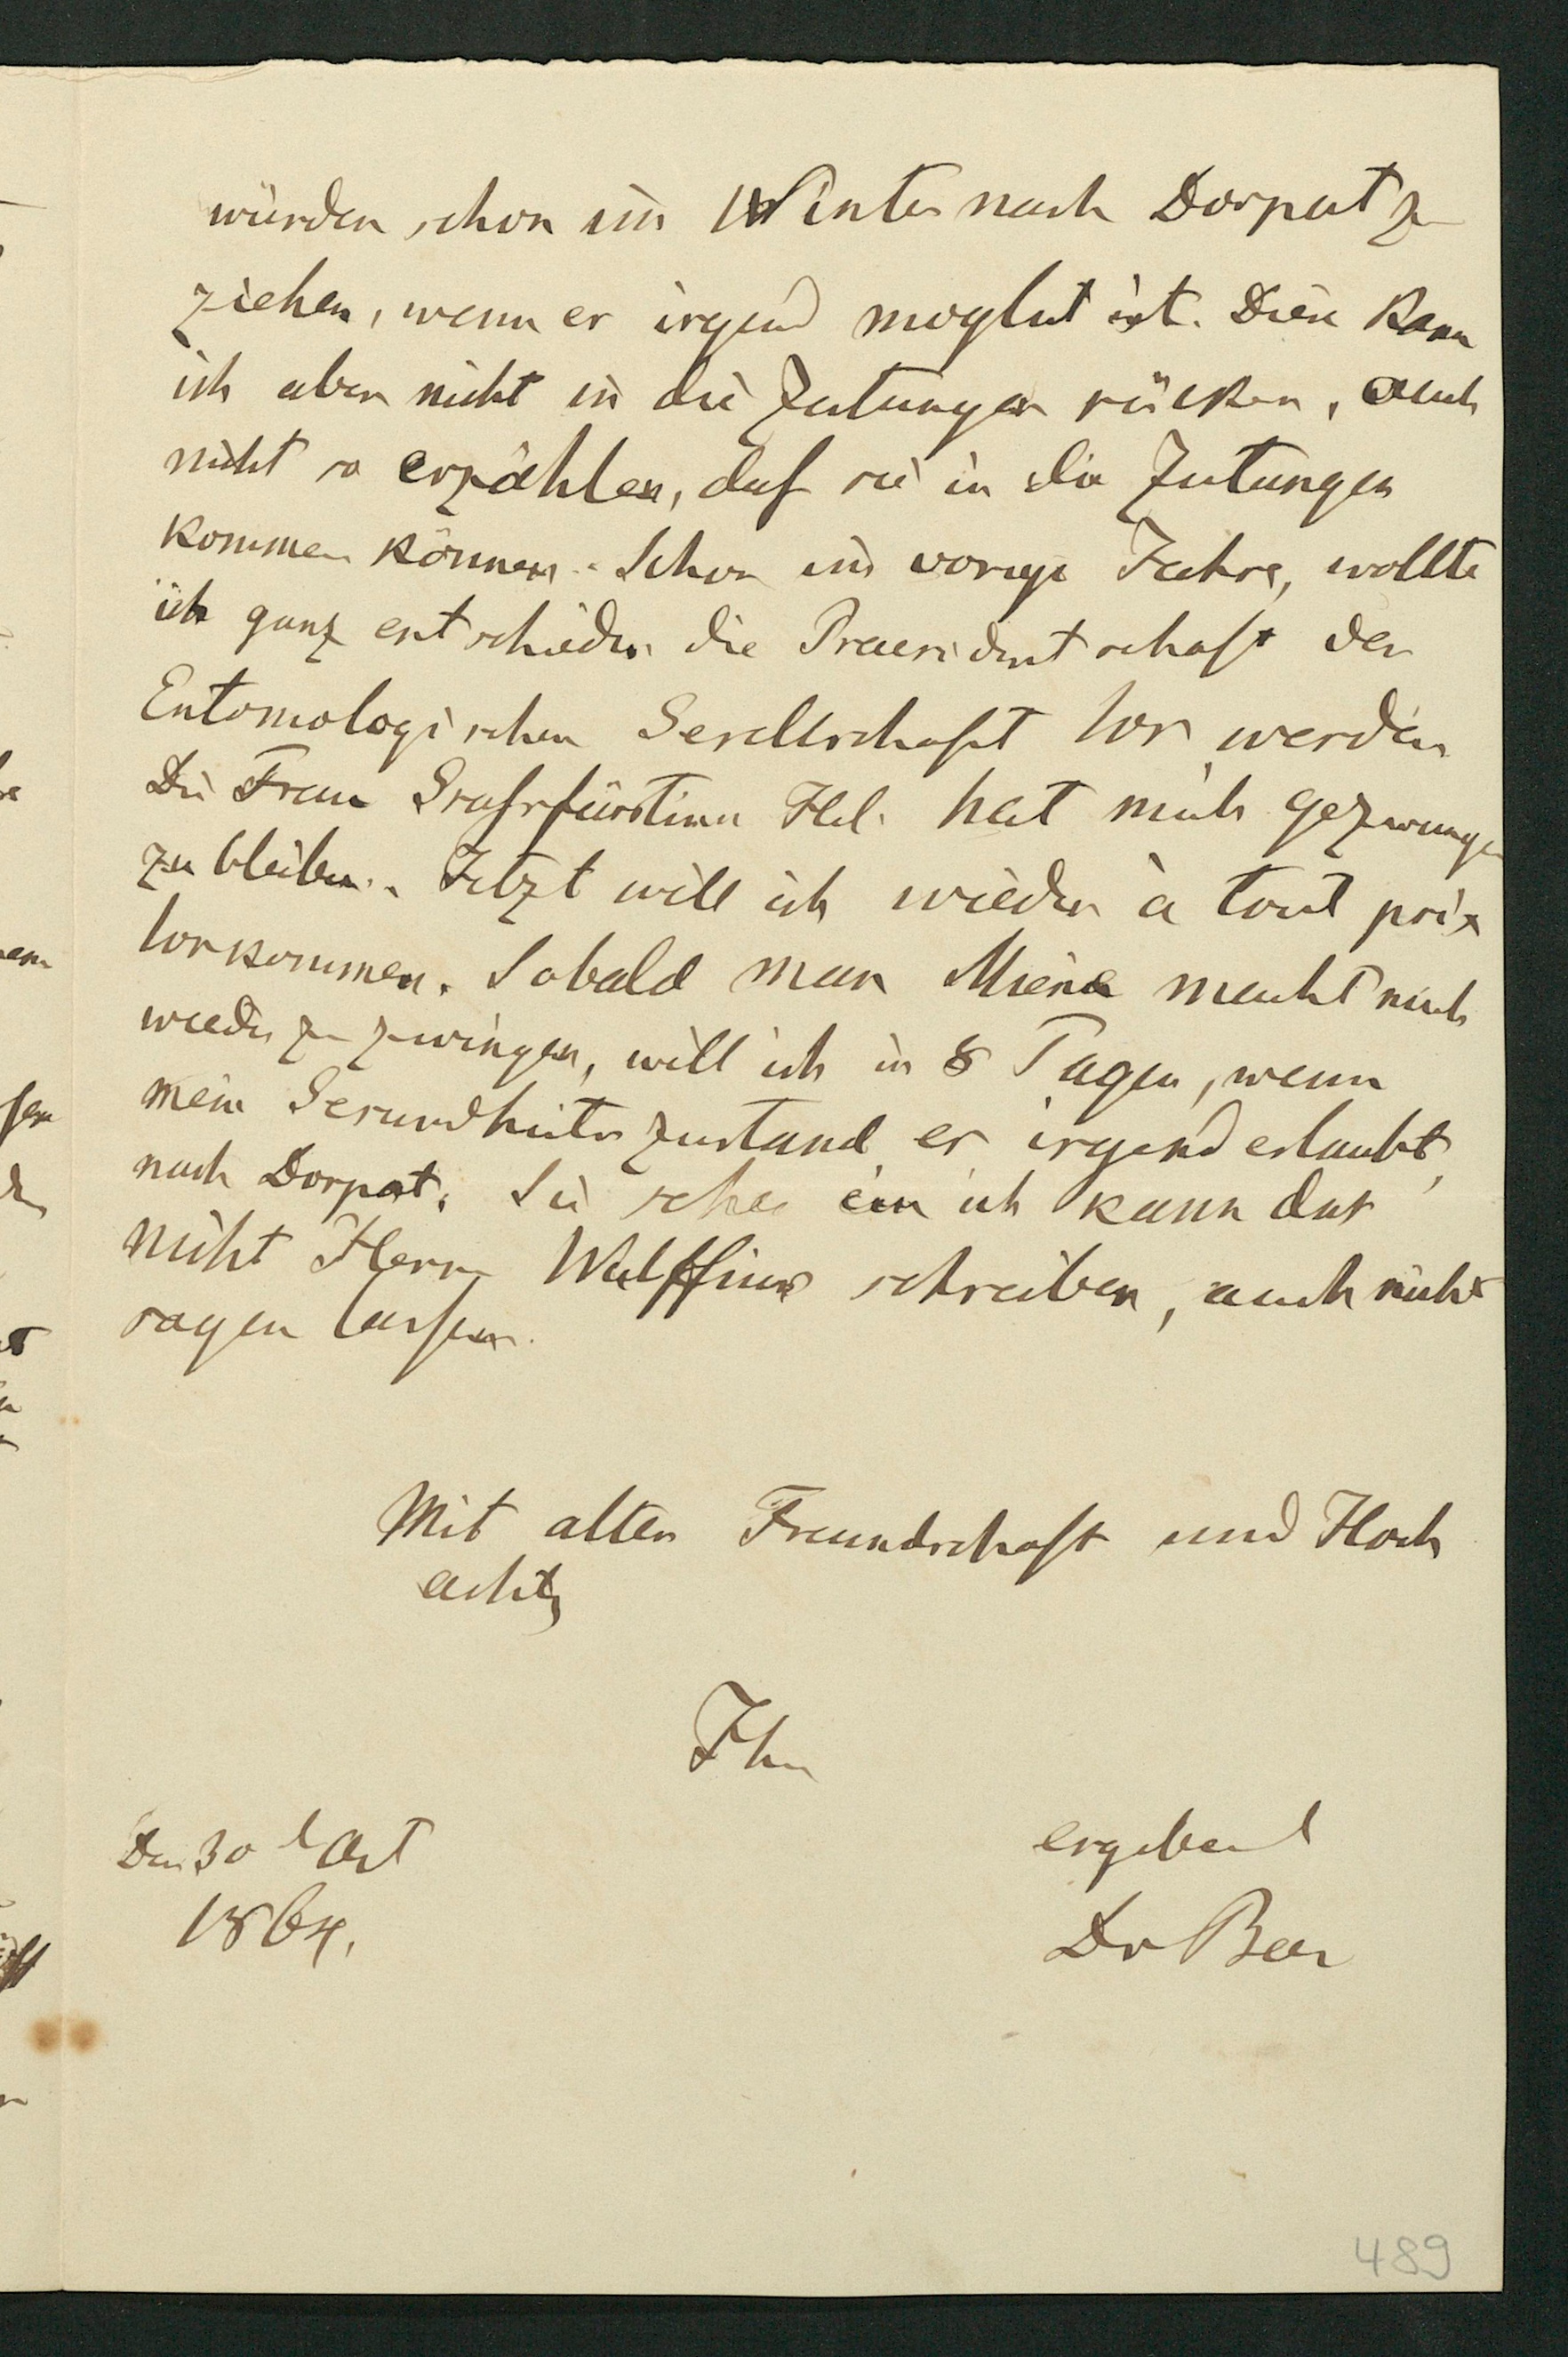 würden schon im Winter nach Dorpat zu
ziehen, wenn es irgend moglich ist. Diese kann
ich aber nicht in die Zeitungen rücken, auch
nicht so erzählen, daß sie in die Zeitungen
kommen können. Schon im vorige Jahre, wollte
ich ganz entschieden die Praesidentschaft der
Entomologischen Gesellschaft los werden
Die Frau Großfürstinn Hel. hat mich gezwungen
zu bleiben. Jetzt will ich wieder à tout prix
loskommen. Sobald man Miene macht mich
wieder zu zwingen, will ich in 8 Tagen, wenn
mein Gesundheitszustand es irgend erlaubt,
nach Dorpat. Sie sehen ein ich kann das
nicht Herrn Wulffius schreiben, auch nicht
sagen lassen.
Mit alter Freundschaft und Hoch
achtg
Ihr
ergebenst
Den 30 Oct
1864.
Dr Baer
489